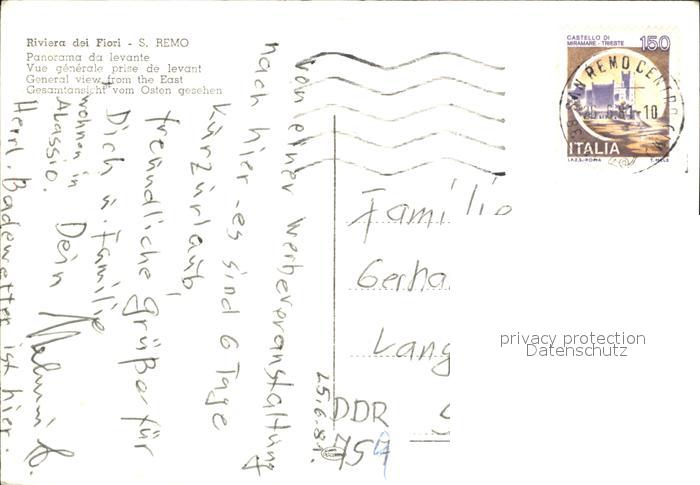 Riviera dei Fiori - S. REMO
Panorama da levante
Vue générale prise de levant
General view from the East
Gesamtansicht vom Osten gesehen
CASTELLO DI
MIRAMARE - TRIESTE 150
ITALIA
I.P.Z.S.-ROMA
SAN REMO CENTRO
10
25.6.81.
Von einer Werbeveranstaltung
nach hier - es sind 6 Tage
Kurzurlaub,
freundliche Grüße für
Dich u. Familie
Dein
wohnen in
Alassio.
Herrl. Badewetter ist hier.
Familie
Gerha
Lang
DDR
privacy protection
Datenschutz